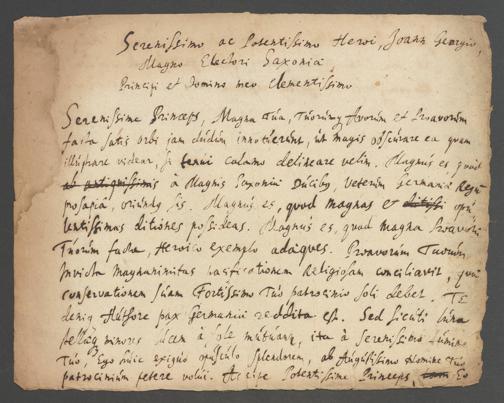 Serenissimo ac Potentissimo Heroi, Joann Georgio,
Magno Electori Saxoniæ,
Principi et Domino meo Clementissimo
Serenissime Princeps, Magna Tua, Tuorumq Avorum et Proavorum
facta satis orbi jam dudum innotuerunt, ut magis obscurare ea quam
illustrare videar, si tenui calamo delineare velim. Magnus es quod
ab antiquissimis à Magnis Saxoniæ Ducibus, veterum Germaniæ Regum
prosapiâ, oriundus sis. Magnus es, quod magnas et ditissi opu
lentissimas ditiones possideas. Magnus es, quod magna Proavorum
Tuorum facta, Heroico exemplo adæques. Proavorum Tuorum
invicta magnanimitas pacificationem Religiosam conciliavit, quæ
conservationem suam Fortissimo Tuo patrocinio soli debet. TE
deniq Authore pax Germaniæ reddita est. Sed sicuti luna
stellæq minores lucem à sole mutuant, ita à Serenissimo Lumine
Tuo, Ego huic exiguo opusculo splendorem, ab Augustissimo Nomine Tuo
patrocinium petere volui. Accipe Potentissime Princeps, Eo